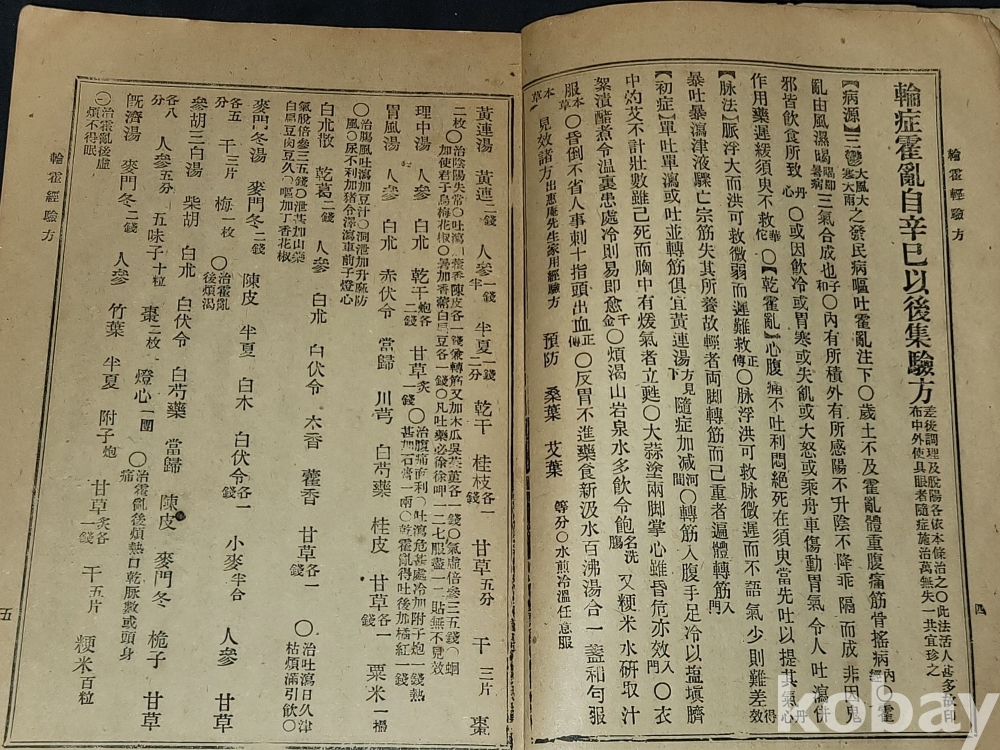 輪症霍亂自辛巳以後集驗方 差後調理及脫陽各依本條治之〇此法活人甚多故印布中外使具眼者隨症施治萬無失一共宜珍之
【病源】三鬱之發民病嘔吐霍亂注下〇歲土不及霍亂體重腹痛筋骨搖病內經〇霍
亂由風濕暍三氣合成也子和〇內有所積外有所感陽不升陰不降乖隔而成非因鬼
邪皆飲食所致丹心〇或因飲冷或胃寒或失飢或大怒或乘舟車傷動胃氣令人吐瀉併
作用藥遲緩須臾不救華佗〇【乾霍亂】心腹痛不吐利悶絕死在須臾當先吐以提其氣丹心
【脉法】脈浮大而洪可救微弱而遲難救正傳〇脉浮洪可救脉微遲而不語氣少則難差得效
暴吐暴瀉津液驟亡宗筋失其所養故輕者両脚轉筋而已重者遍體轉筋入門
【初症】單吐單瀉或吐並轉筋俱宜黃連湯方見下隨症加減河間〇轉筋入腹手足冷以塩塡臍
中灼艾不計壯數雖已死而胸中有煖氣者立甦〇大蒜塗兩脚掌心雖昏危亦效入門〇衣
絮漬醋煮令溫裏患處冷則易即愈千金〇煩渴山岩泉水多飲令飽名洗腸又粳米水硏取汁
服本草〇昏倒不省人事刺十指頭出血正傳〇反胃不進藥食新汲水百沸湯合一盞和勻服
本草 見效諸方 出惠庵先生家用經驗方 預防 桑葉 艾葉 等分〇水煎冷溫任意服
輪霍經驗方
四
黃連湯 黃連二錢 人參一錢半 半夏一錢二分 乾干 桂枝各一錢 甘草五分 干三片 棗
二枚
理中湯 人參 白朮 乾干炮各二錢 甘草炙一錢
胃風湯 人參 白朮 赤伏令 當歸 川芎 白芍藥 桂皮 甘草各一錢 粟米一撮
〇治腸風吐瀉加豆汁〇洞泄加升麻防風〇尿不利加猪令澤瀉車前子燈心
白朮散 乾葛二錢 人參 白朮 白伏令 木香 藿香 甘草各一錢 〇治吐瀉日久津枯煩滿引飲〇
氣脫倍參三五錢〇泄甚加山藥白扁豆肉豆久〇嘔加丁香花椒
麥門冬湯 麥門冬二錢 陳皮 半夏 白木 白伏令各一錢 小麥半合 人參 甘草
各五分 干三片 梅一枚 〇治霍亂後煩渴
參胡三白湯 柴胡 白朮 白伏令 白芍藥 當歸 陳皮 麥門冬 梔子 甘草
各八分 人參五分 五味子十粒 棗二枚 燈心一團 〇治霍亂後煩熱口乾脈數或頭身痛
旣濟湯 麥門冬二錢 人參 竹葉 半夏 附子炮 甘草炙各一錢 干五片 粳米百粒
〇治霍亂後虛煩不得眠
輪霍經驗方
五
kobay